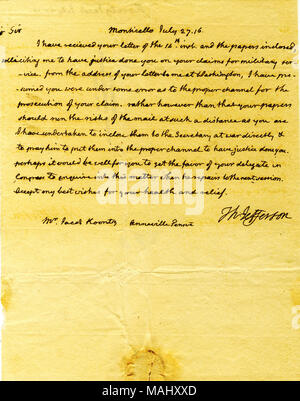 Sir Monticello July 27. 16.
I have recieved your letter of the 16th inst. and the papers inclosed,
solliciting me to have justice done you on your claims for military ser-
vice. from the address of your letter to me at Washington, I have pre-
-sumed you were under some error as to the proper channel for the
prosecution of your claim. rather however than that your papers
should run the risks of the mail at such a distance as you are
I have undertaken to inclose them to the Secretary at war directly &
to pray him to put them into the proper channel to have justice done you.
perhaps it would be well for you to get the favor of your delegate in
Congress to enquire into the matter when he repairs to the next session.
Accept my best wishes for your health and relief.
Th: Jefferson
Mr. Jacob Koontz Annaville Pennsva
alamy
Image ID: MAHXXD
www.alamy.com